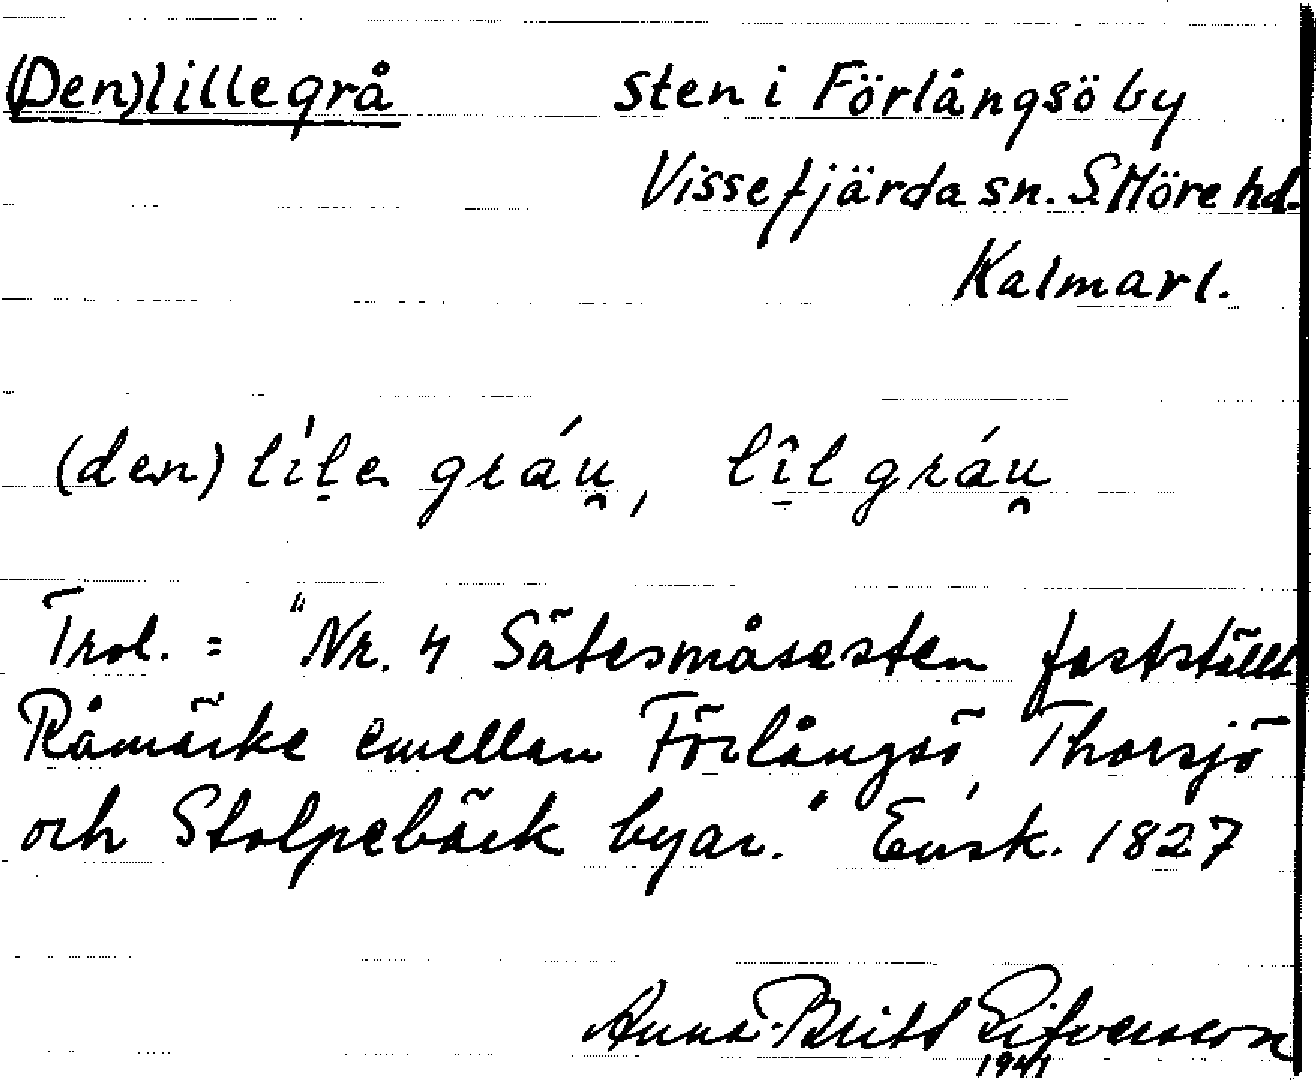 (Den)lillegrå sten i Förlångsö by
Vissefjärda sn. S. Möre hd.
Kalmar l.
(den) lílle gráu̯, lîl gráu̯
Trol. = "Nr. 4 Sätesmåsesten fastställt
Råmärke emellan Förlångsö, Thorsjö
och Stolpebäck byar." Ensk. 1827
Anna-Britt
1941